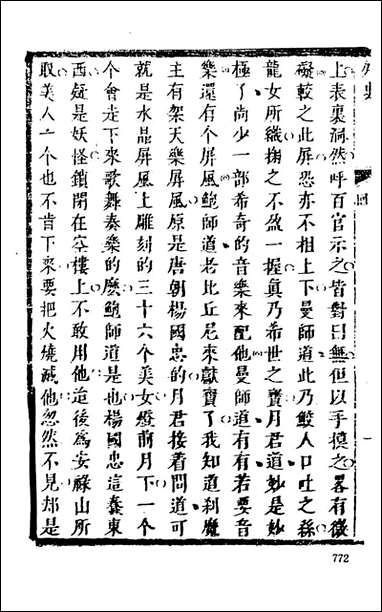 上表裏洞然呼百官示之皆對曰無但以手摸之畧有微
礙較之此屏恐亦不相上下曼師道此乃鮫人口吐之絲
龍女所織掬之不盈一握眞乃希世之寳月君道妙是妙
極了尚少一部希奇的音樂來配他曼師道有有若要音
樂還有个屏風鮑師道老比丘尼來獻寳了我知道刹魔
主有架天樂屏風原是唐朝楊國忠的月君接着問道可
就是水晶屏風上雕刻的三十六个美女燈前月下一个
个會走下來歌舞奏樂的麽鮑師道是也楊國忠這蠢東
西疑是妖怪鎖閉在空樓上不敢用他這後爲安祿山所
取美人一个也不肯下來要把火燒滅他忽然不見却是
772